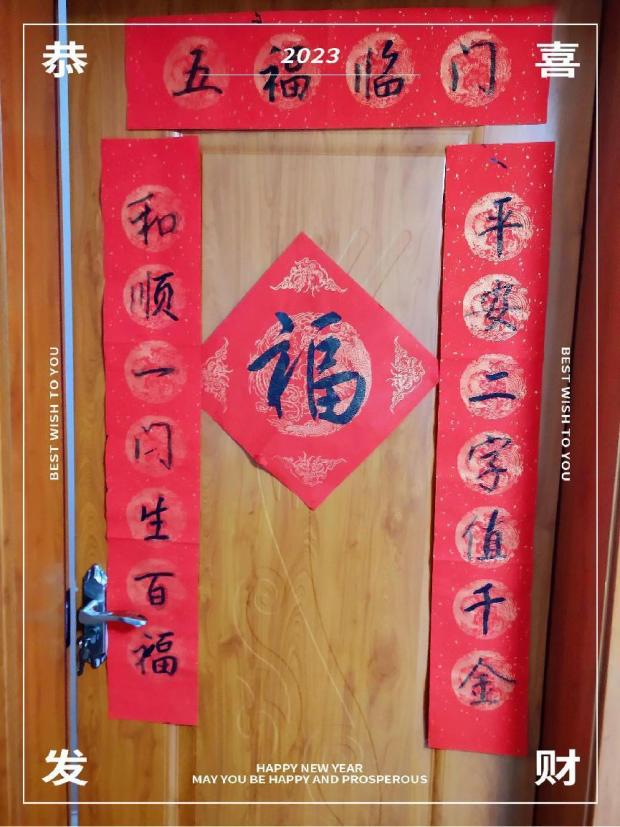 恭喜
2023
五福临门
平安二字值千金
和顺一门生百福
福
BEST WISH TO YOU
BEST WISH TO YOU
发财
HAPPY NEW YEAR
MAY YOU BE HAPPY AND PROSPEROUS